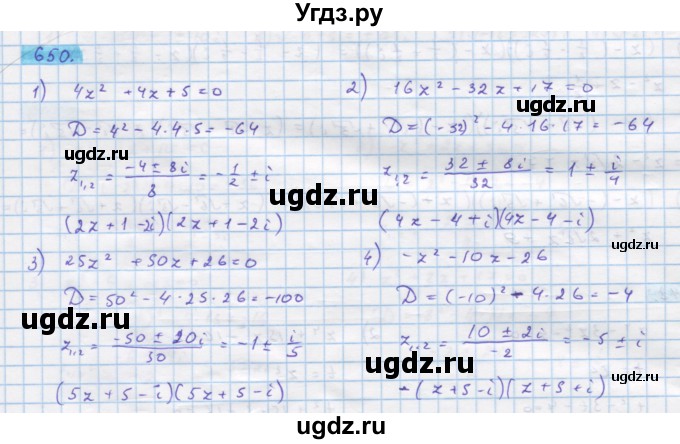 Угдз.ру
650.
1) 4z² + 4z + 5 = 0
D = 4² - 4·4·5 = -64
z₁,₂ = (-4 ± 8i)/8 = -1/2 ± i
(2z + 1 - 2i)(2z + 1 - 2i)
2) 16z² - 32z + 17 = 0
D = (-32)² - 4·16·17 = -64
z₁,₂ = (32 ± 8i)/32 = 1 ± i/4
(4z - 4 + i)(4z - 4 - i)
3) 25z² + 50z + 26 = 0
D = 50² - 4·25·26 = -100
z₁,₂ = (-50 ± 20i)/50 = -1 ± i/5
(5z + 5 - i)(5z + 5 - i)
4) -z² - 10z - 26
D = (-10)² - 4·26 = -4
z₁,₂ = (10 ± 2i)/-2 = -5 ± i
-(z + 5 - i)(z + 5 + i)
ugdz.ru
ugdz.ru
ugdz.ru
ugdz.ru
ugdz.ru
ugdz.ru
ugdz.ru
ugdz.ru
ugdz.ru
ugdz.ru
ugdz.ru